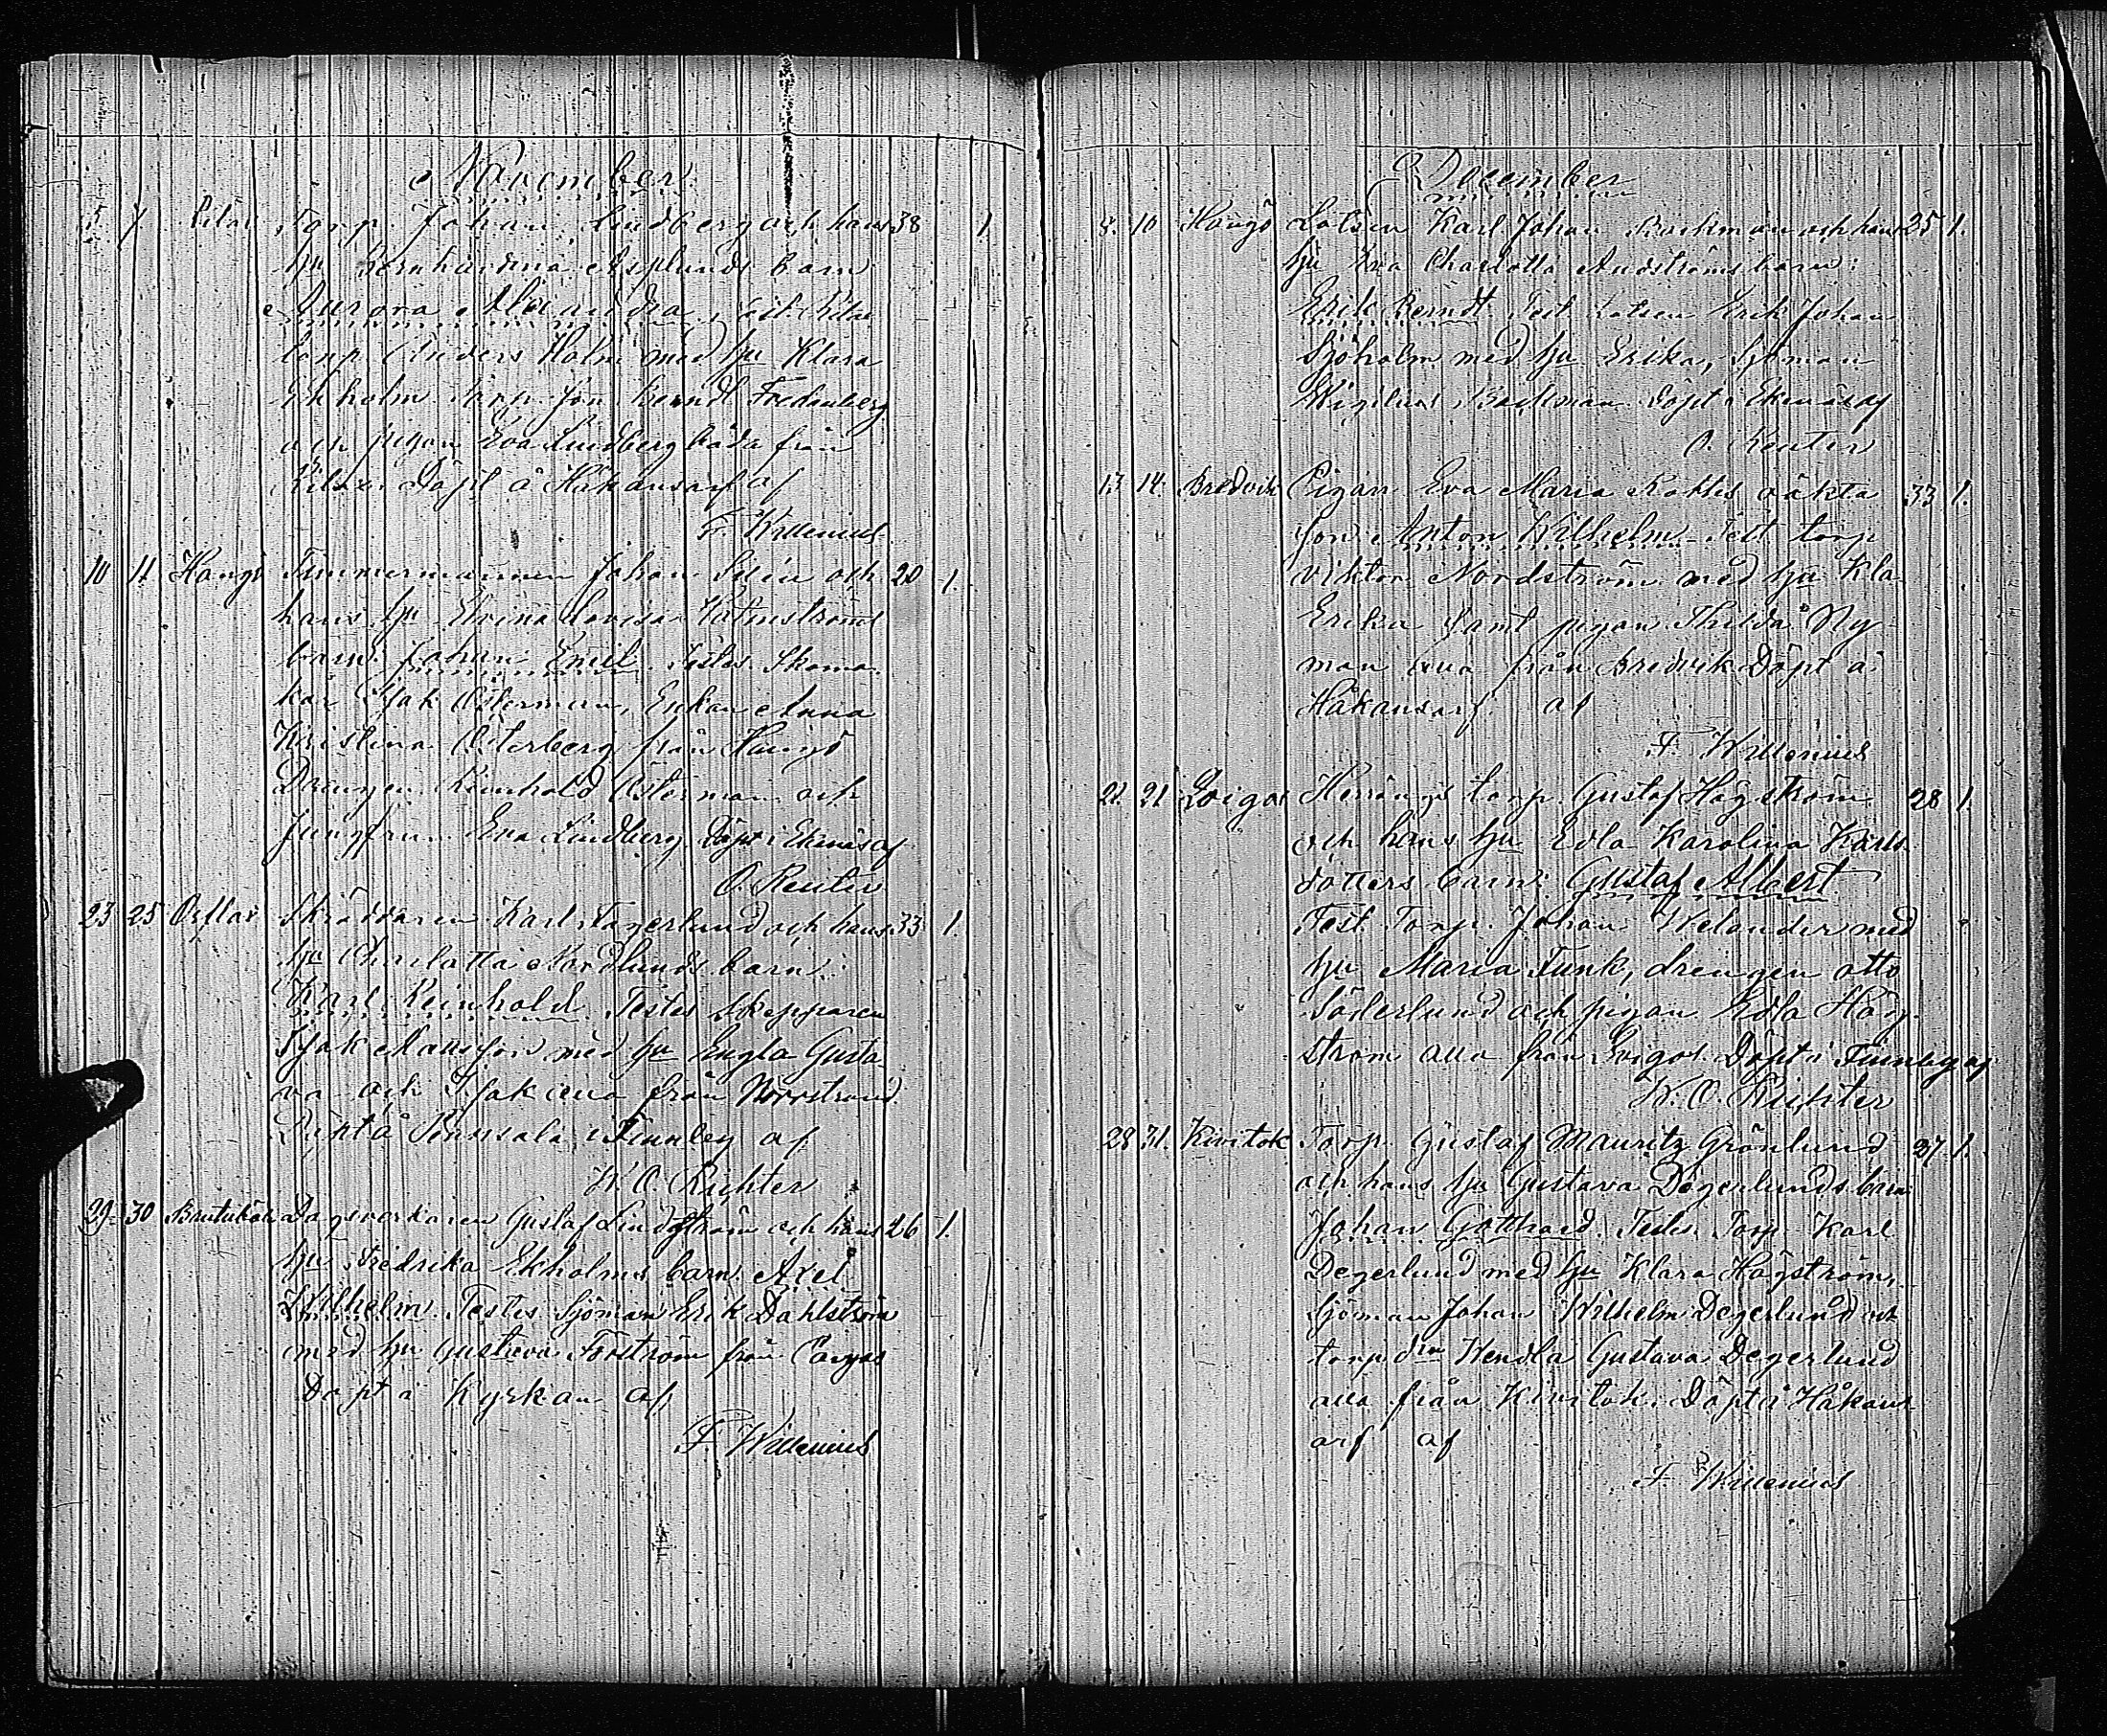 November
5. 7. Torp. Johan Lindberg och hans 38 1.
hu Bernhardina Asplunds barn
Aurora Alexandra,
torp. Anders Holm med hu Klara
Ekholm torp. son Berndt Fredenberg
och pigan Eva Lindberg båda från
Döpt å Håkansarf af
F. Willenius
10 11 Hangö Timmermannen Johan och 20 1.
hans hu Lovisa
barn: Johan Emil. Testes Skoma
kar Isak Österman, Enkan Anna
Kristina Österberg från Hangö
Drengen Reinhold Österman och
Jungfrun Eva Lindberg Döpt i Ekenäs af
O. Reuter
23 25 Skräddaren Karl Fagerlund och hans 33 1.
hu Charlotta Nordlunds barn:
Karl Reinhold Testes Skepparen
Isak Mansson med hu Engla Gusta
va och Isak alla från Norrstrand
Döpt å i Finnby af
W. O. Richter
29 30 Dagsverkaren Gustaf Lindström och hans 26 1.
hu Fredrika Ekholms barn Axel
Wilhelm. Testes Sjöman Erik Dahlström
med hu Gustava Forström från
Döpt i Kyrkan af
F. Willenius
December
8. 10 Hangö Lotsen Karl Johan Backman och hans 25 1.
hu Eva Charlotta Andströms barn:
Erik Berndt Test Lotsen Erik Johan
Sjöholm med hu Erika, Sjöman
Backman Döpt i Ekenäs af
O. Reuter
13 14. Bredvik Pigan Eva Maria oäkta 33 1.
son Anton Wilhelm Test torp
Viktor Nordström med hu Kla
Erika samt pigan Thilda Ny
man alla från Bredvik Döpt å
Håkansarf af
F. Willenius
21. 21 torp. Gustaf Hagström 28 1.
och hans hu Edla Karolina Karls
dotters barn: Gustaf Albert
Test Torp. Johan Welander med
hu Maria Funk, drengen Otto
Söderlund och pigan Edla Häg
ström alla från Döpt i Finnby af
W. O. Richter
28 31. Kivitok Torp. Gustaf Mauritz Grönlund 27 1.
och hans hu Gustava Degerlunds barn
Johan Gotthard. Testes Torp Karl
Degerlund med hu Klara Hägström,
Sjöman Johan Wilhelm Degerlund och
torp.drn Wendla Gustava Degerlund
alla från Kivitok. Döpt å Håkans
arf af
F. Willenius